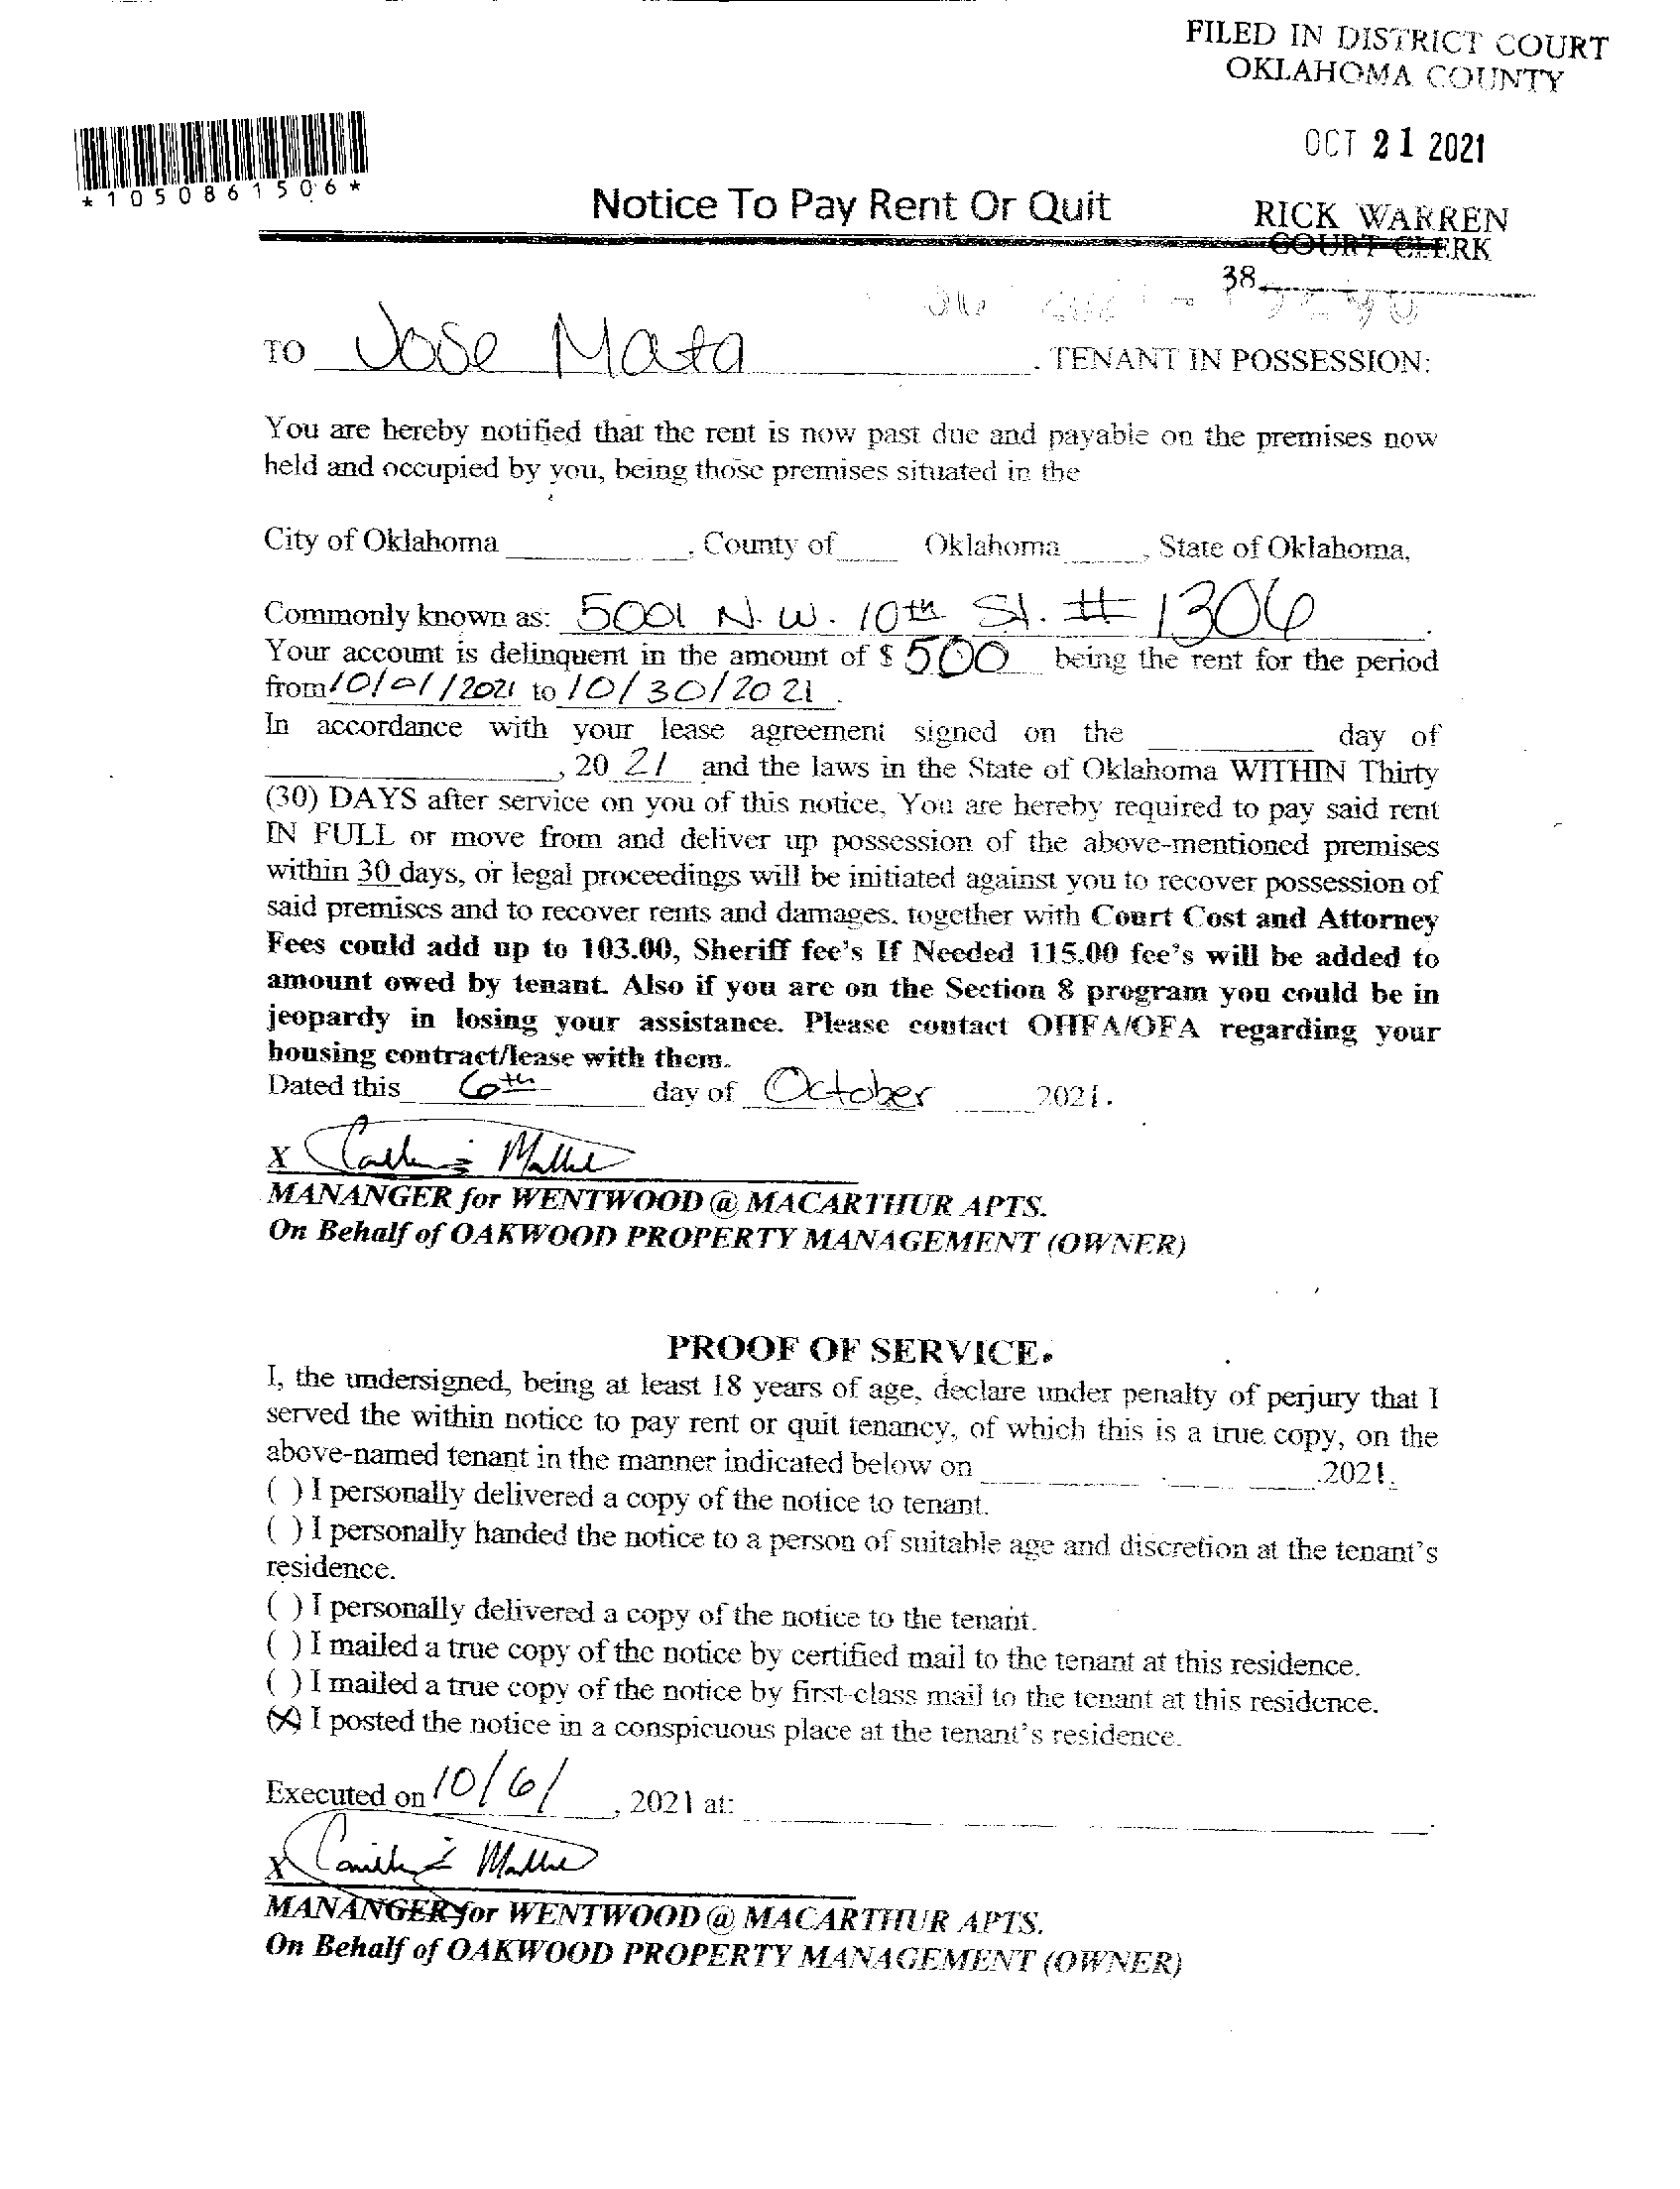 FILED IN DISTRICT COURT
OKLAHOMA COUNTY
OCT 21 2021
*1050861506*
Notice To Pay Rent Or Quit
RICK WARREN
COURT CLERK
38
TO Jose Mata . TENANT IN POSSESSION:
You are hereby notified that the rent is now past due and payable on the premises now
held and occupied by you, being those premises situated in the
City of Oklahoma , County of Oklahoma , State of Oklahoma,
Commonly known as: 5001 N.W. 10th St. # 1306.
Your account is delinquent in the amount of $ 500 being the rent for the period
from 10/01/2021 to 10/30/2021.
In accordance with your lease agreement signed on the ________ day of
________, 20 21 and the laws in the State of Oklahoma WITHIN Thirty
(30) DAYS after service on you of this notice, You are hereby required to pay said rent
IN FULL or move from and deliver up possession of the above-mentioned premises
within 30 days, or legal proceedings will be initiated against you to recover possession of
said premises and to recover rents and damages. together with Court Cost and Attorney
Fees could add up to 103.00, Sheriff fee's If Needed 115.00 fee's will be added to
amount owed by tenant. Also if you are on the Section 8 program you could be in
jeopardy in losing your assistance. Please contact OHFA/OFA regarding your
housing contract/lease with them.
Dated this 6th day of October 2021.
X
MANANGER for WENTWOOD @ MACARTHUR APTS.
On Behalf of OAKWOOD PROPERTY MANAGEMENT (OWNER)
PROOF OF SERVICE.
I, the undersigned, being at least 18 years of age, declare under penalty of perjury that I
served the within notice to pay rent or quit tenancy, of which this is a true copy, on the
above-named tenant in the manner indicated below on ________ .2021.
( ) I personally delivered a copy of the notice to tenant.
( ) I personally handed the notice to a person of suitable age and discretion at the tenant's
residence.
( ) I personally delivered a copy of the notice to the tenant.
( ) I mailed a true copy of the notice by certified mail to the tenant at this residence.
( ) I mailed a true copy of the notice by first-class mail to the tenant at this residence.
(X) I posted the notice in a conspicuous place at the tenant's residence.
Executed on 10/6/ , 2021 at: ________.
X
MANANGER for WENTWOOD @ MACARTHUR APTS.
On Behalf of OAKWOOD PROPERTY MANAGEMENT (OWNER)